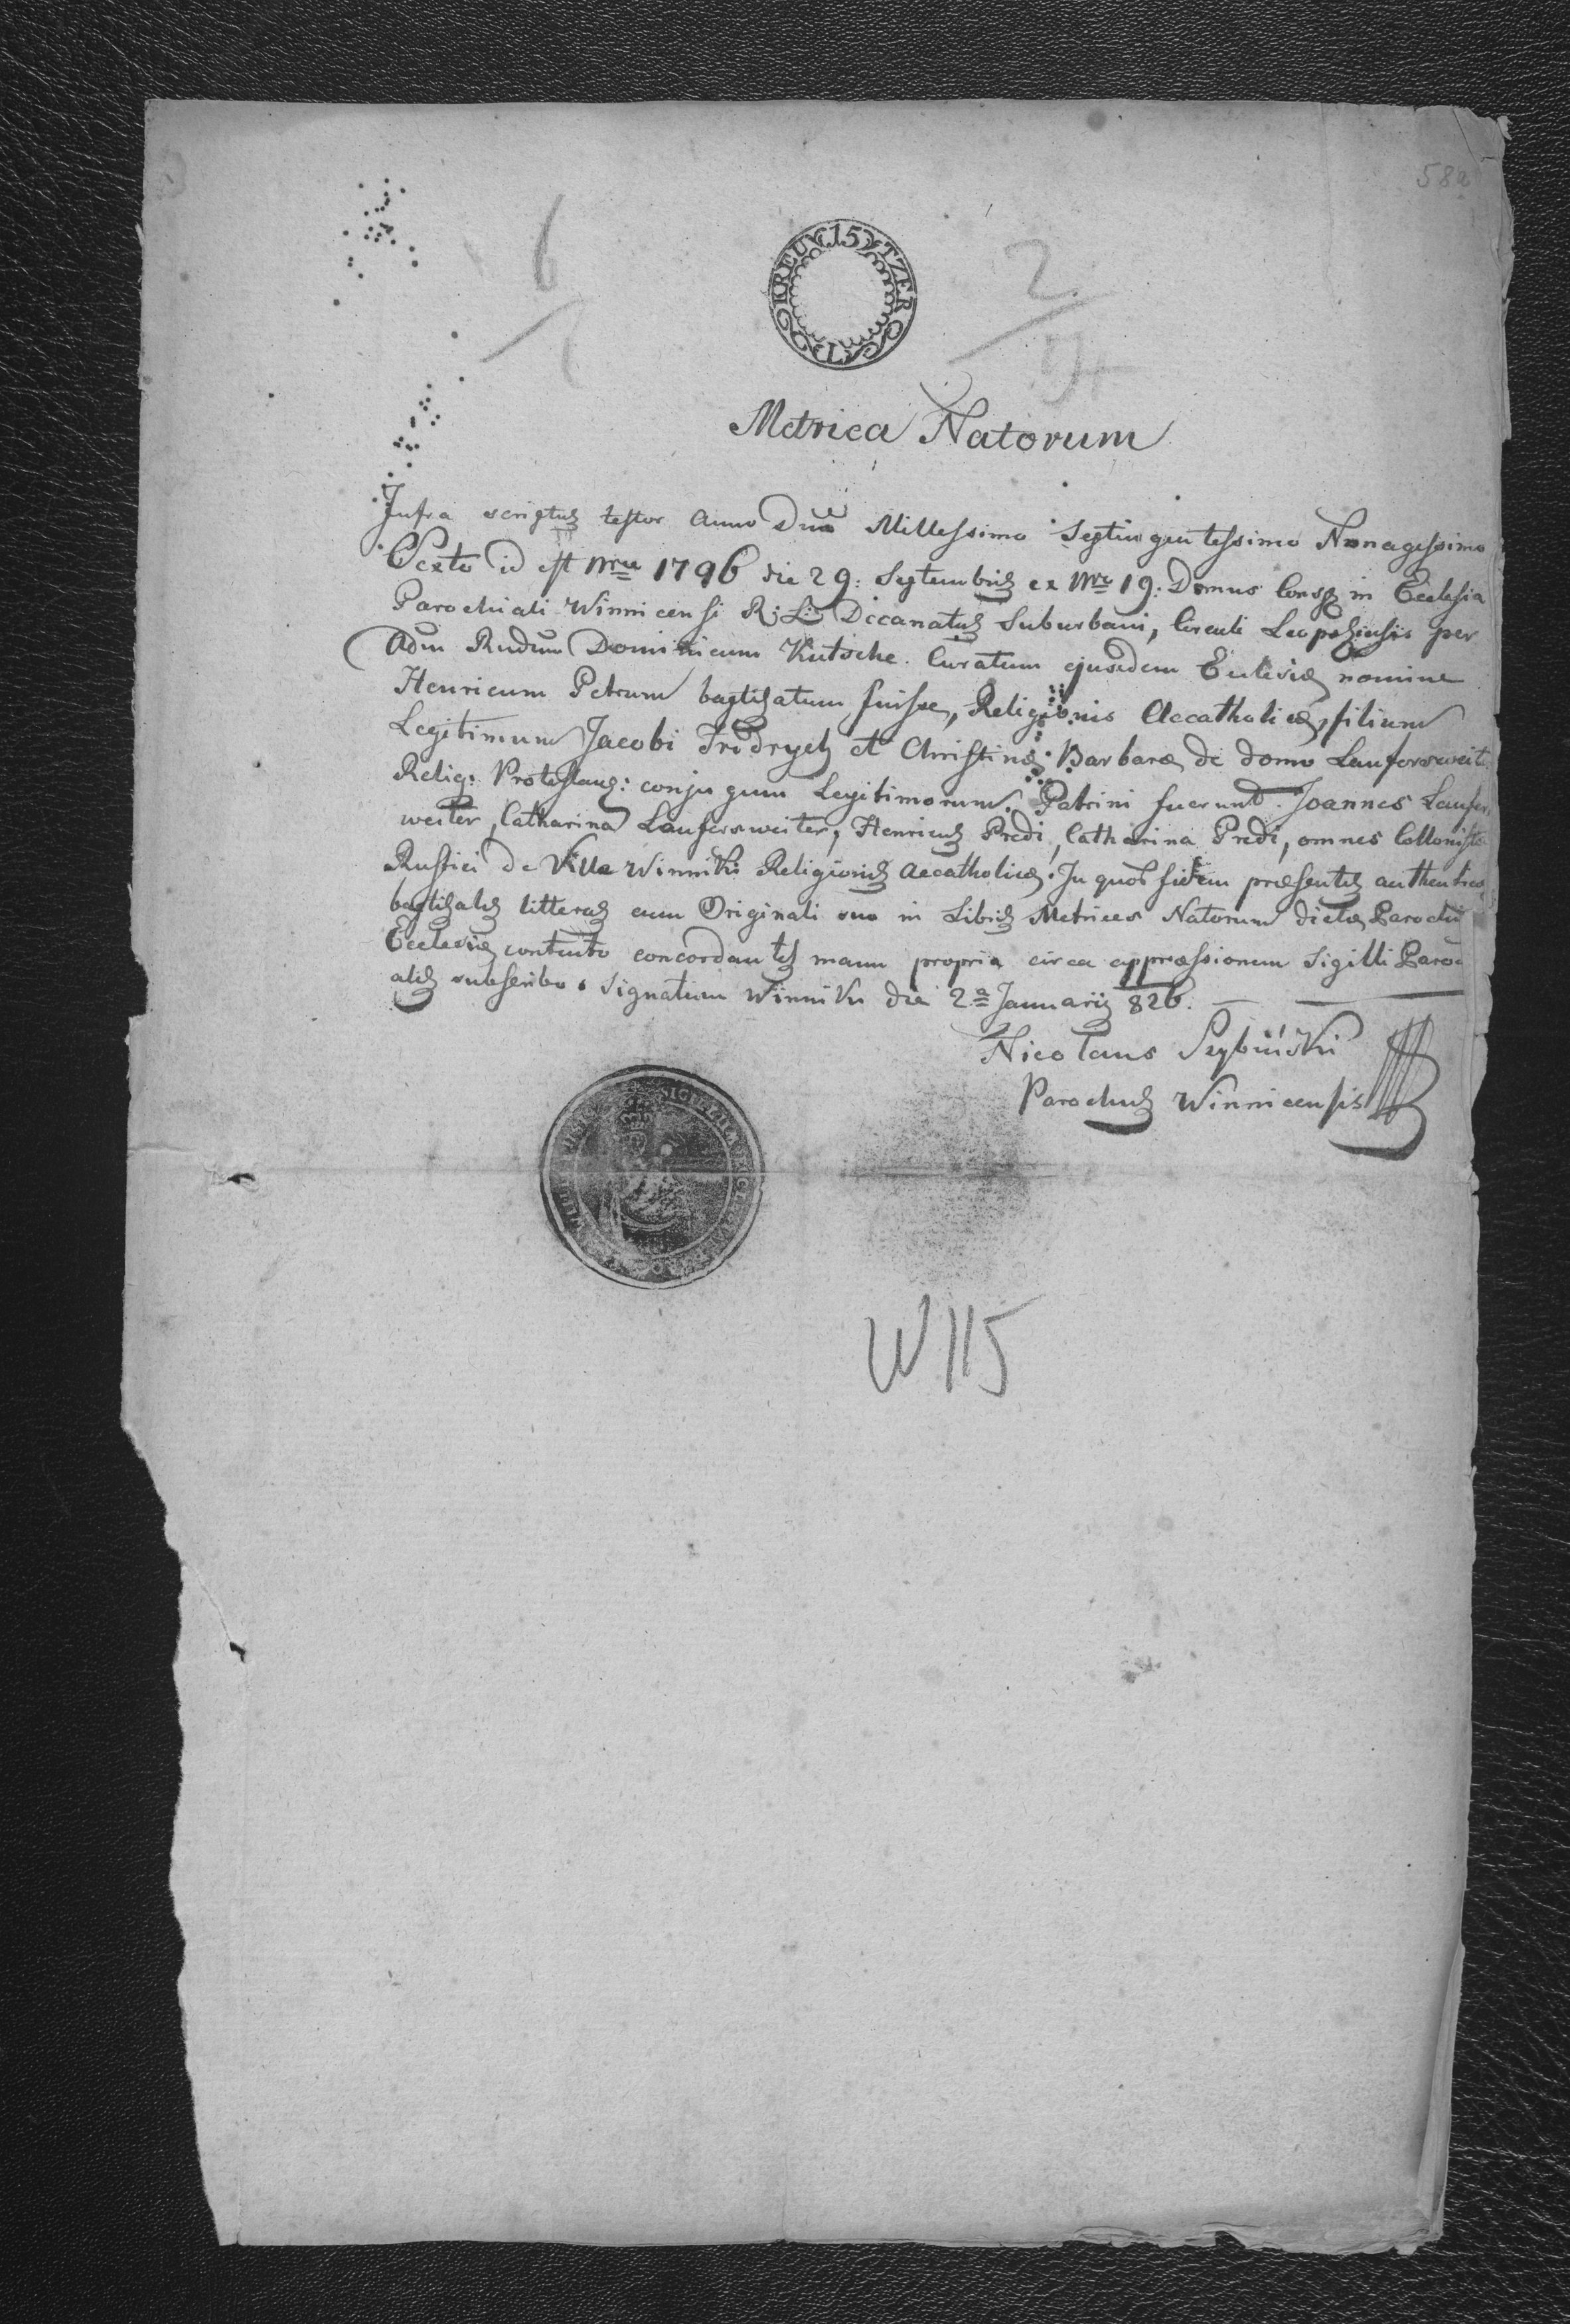 582
6
2
15 KREUTZER
Metrica Natorum
Infra scriptus testor Anno Dnĩ Millessimo Septingentessimo Nonagessimo
Sexto id est Nrũ 1796 die 29: Septembris ex Nro 19: Domus Consς in Ecclesia
Parochiali Winnicensi R: L: Decanatus Suburbani, Circuli Leopoliensis per
Adm Rndum Dominicum Kutsche. Curatum ejusdem Eclesiæ nomine
Henricum Petrum baptisatum fuisse, Religionis Accatholicæ, filium
Legitimum Jacobi Fridrych et Christinæ Barbaræ de domo Laufersweit
Relig: Protestans: conjugum Legitimorum. Patrini fuerunt Joannes Laufers
weiter, Catharina Laufersweiter, Henricus Predi, Catharina Predi, omnes Collonistæ
Rustici de Villa Winniki Religionis Accatholicæ. In quor fidem præsentes authenticas
baptisales litteras cum Originali suo in Libris Metrices Natorum dictæ Parochi
Ecclesiæ contento concordantes manu propria circa appræssionem Sigilli Paroch
ialis subscribo. Signatum Winniki die 2a Januarij 826.
Nicolaus
Parochus Winnicensis
W 115